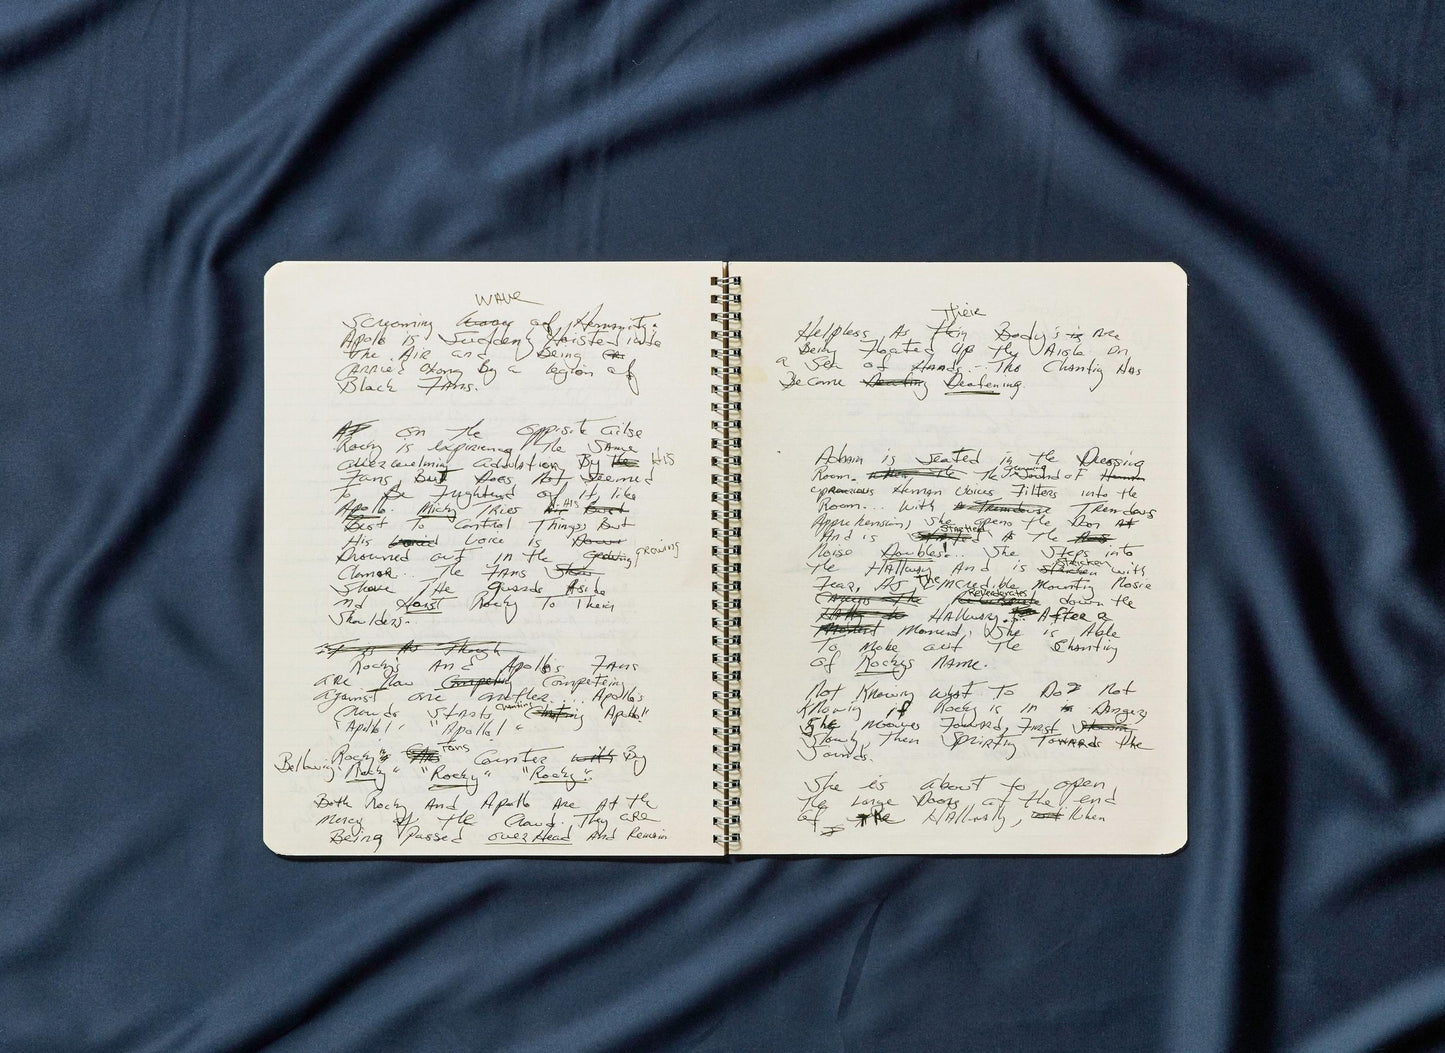 wave
Screaming of Humanity.
Apollo is Suddenly Hoisted into
The Air and Being
CARRIED Along By a legion of
Black FANS.
on the opposite aisle
Rocky is experiencing The SAME
overwhelming adulation By the HIS
FANS But Does Not Seemed
To Be Frightend of it, like
Apollo. Micky TRIES HIS
Best To Control Things, But
His Voice is
Drowned out in the growing
Clamor... The FANS
Shove The guards Aside
nd Hoist Rocky To Their
Shoulders..
It is As Though
Rocky's And Apollo's FANS
are Now Competeing
against one another... Apollo's
Crowds STARTS Chanting Apollo!
"Apollo! Apollo! "
Rocky's Fans Counter with By
Bellowing "Rocky" "Rocky" "Rocky".
Both Rocky And Apollo Are At the
mercy of the Crowd. They are
Being passed over Head And Remain
Their
Helpless As They Body's is Are
Being Floated Up the Aisle on
a Sea of HANDS.. The Chanting Has
Become Deafening.
Adrain is Seated in the Dressing
Room. when the The Sound of Human
Human Voices Filters into the
Room... With Tremdous
Apprehension, she opens the Door
And is Startled As The
Noise Doubles!... She Steps into
The HAllway And is Stricken with
Fear, As The Incredible mounting Nosie
Across The Reveberates down the
HAllway.. After a
Moment Moment, She is Able
To make out The Chanting
of Rockys NAME.
Not Knowing what To Do? Not
Knowing if Rocky is in Danger,
She moves Foward, First
Slowly, Then Spriting Towards the
Sounds.
She is about to open
The Large Doors at the end
of The HAllway, when